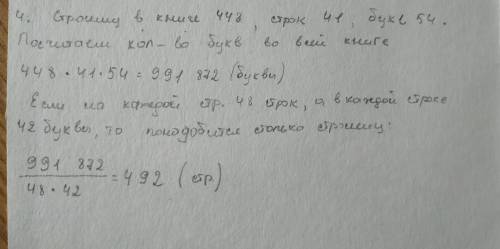 4. Страниц в книге 448, строк 41, букв 54.
Посчитаем кол-во букв во всей книге
448 · 41 · 54 = 991 872 (буквы)
Если на каждой стр. 48 строк, а в каждой строке
42 буквы, то понадобится столько страниц:
991 872
48 · 42
= 492 (стр)